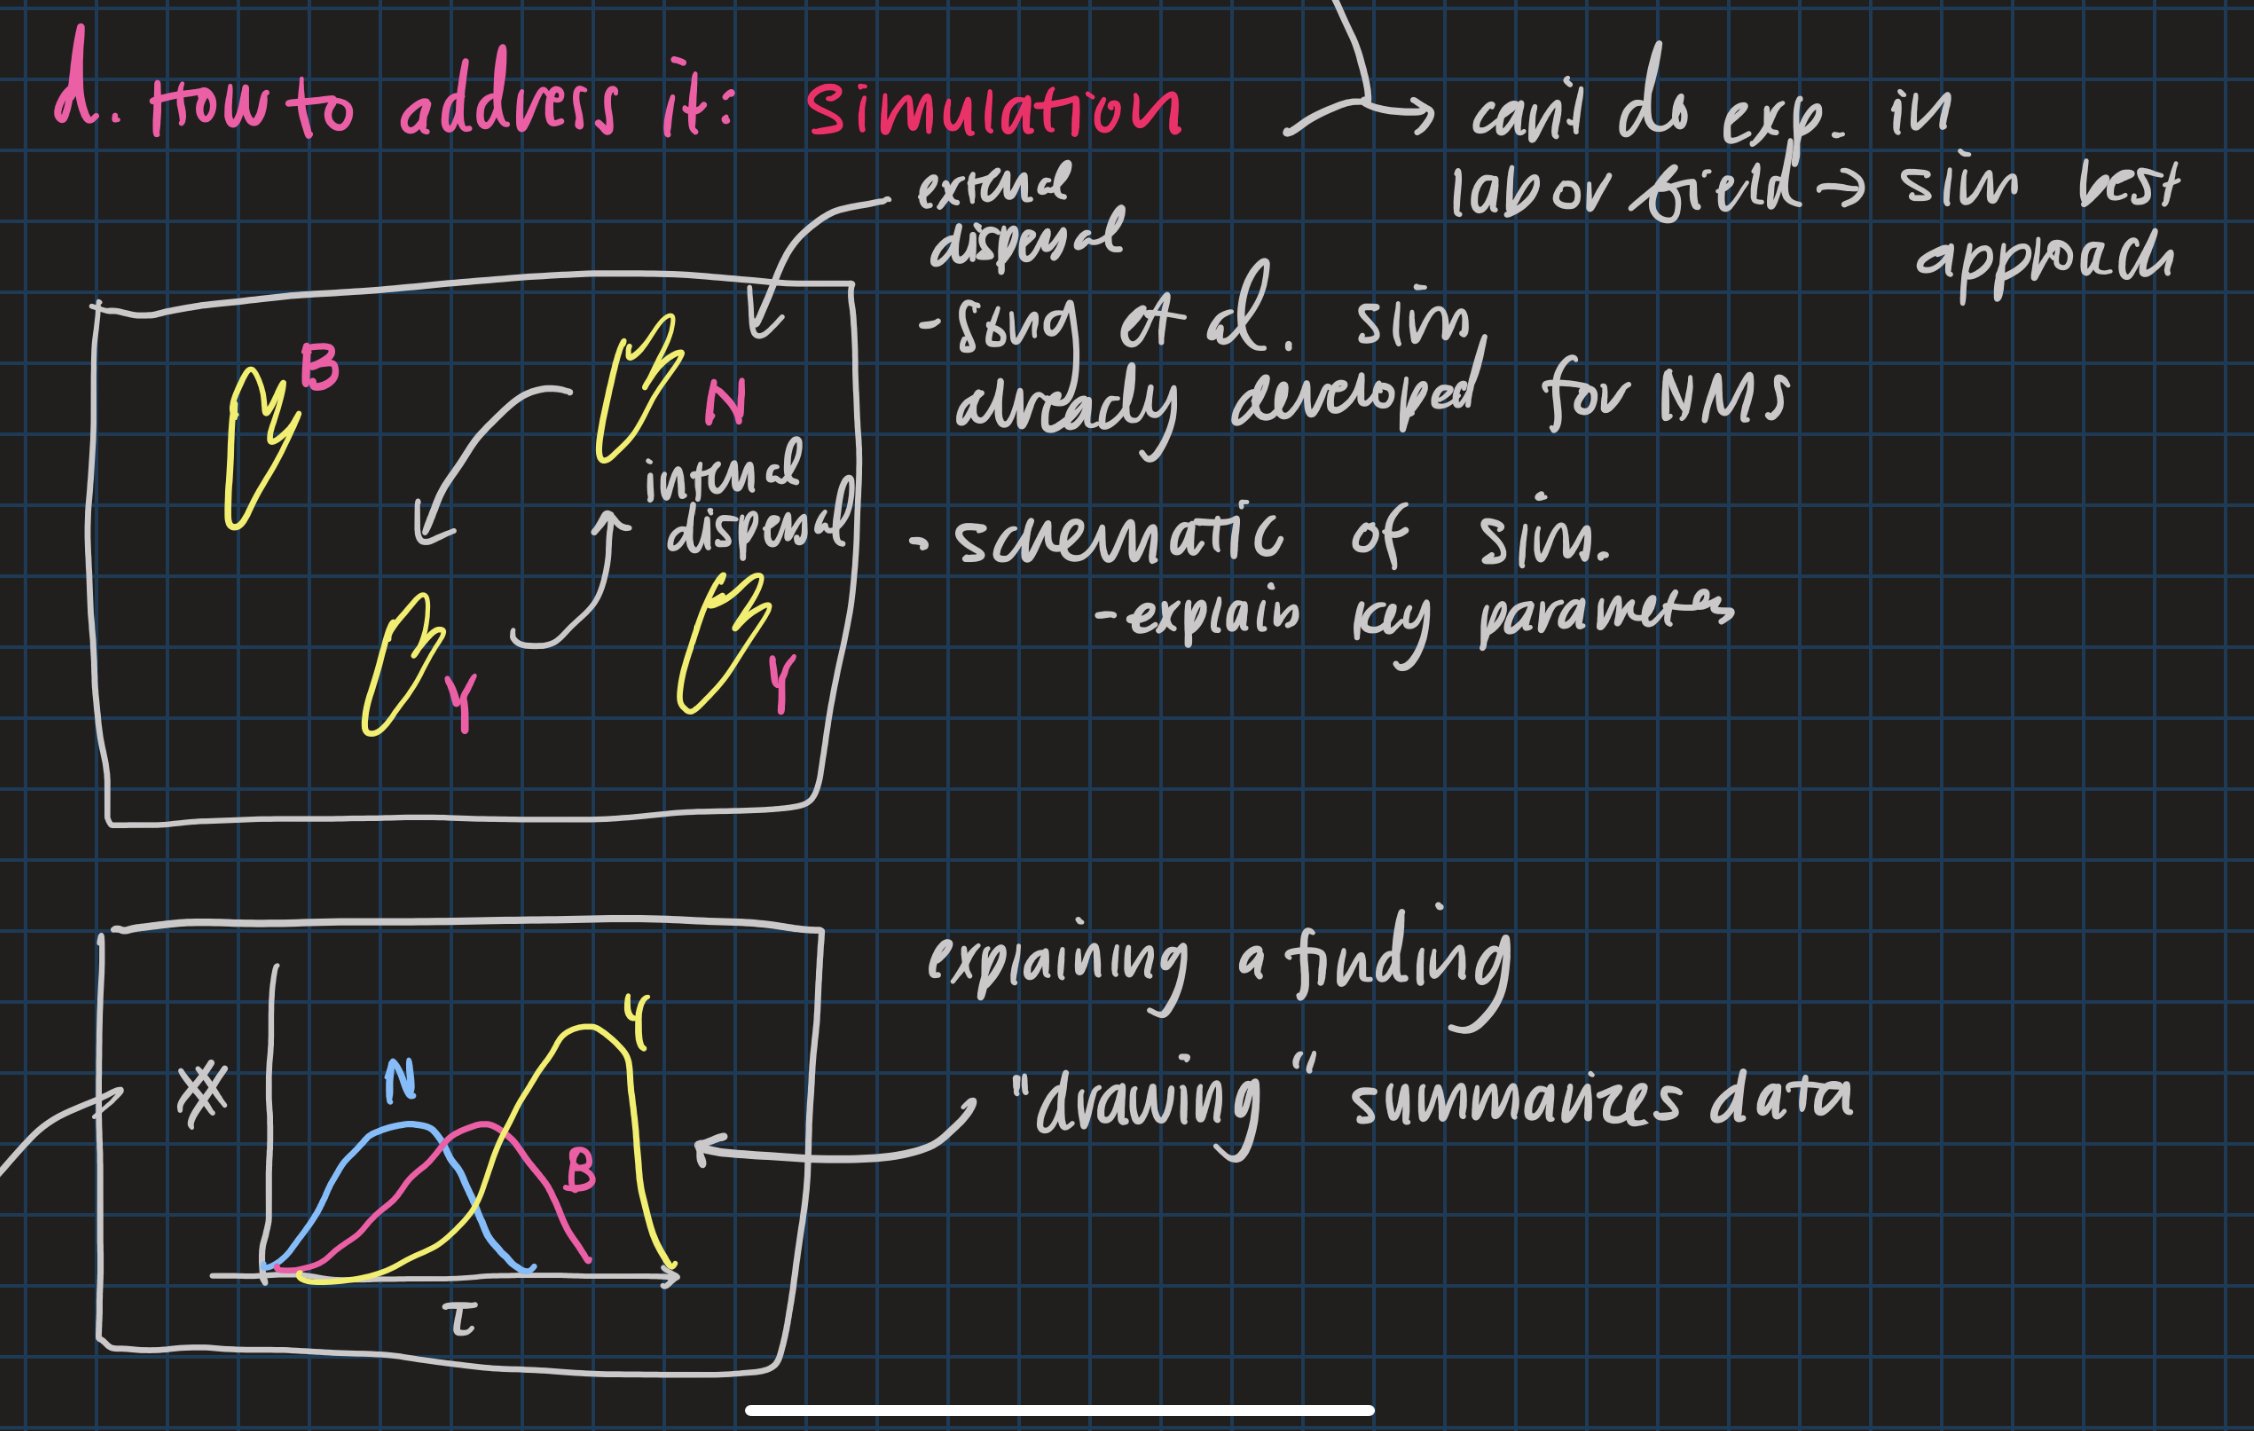 d. How to address it: simulation
can't do exp. in
lab or field → sim best
approach
external
dispersal
- Song et al. sim
already developed for NMS
- schematic of sim.
- explain key parameters
B
N
internal
dispersal
Y
Y
explaining a finding
"drawing" summarizes data
Y
N
B
τ